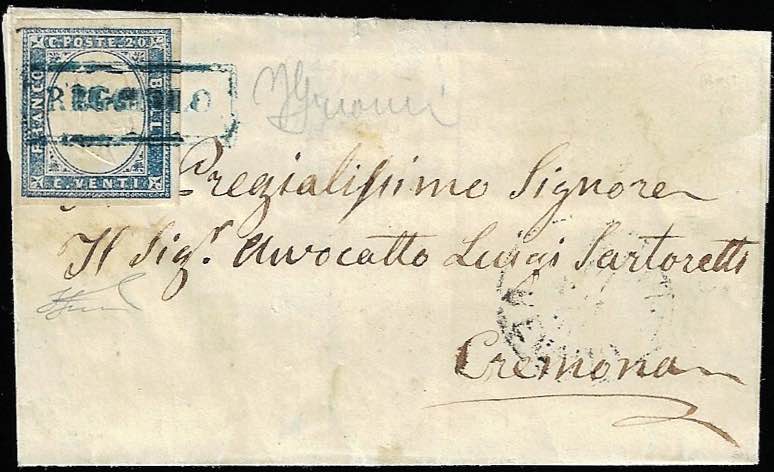 C. POSTE. 20
FRANCO
BOLLO
C. VENTI
REGGIOLO
Pregialissimo Signore
Il Sigr. Avvocatto Luigi Sartoretti
Cremona